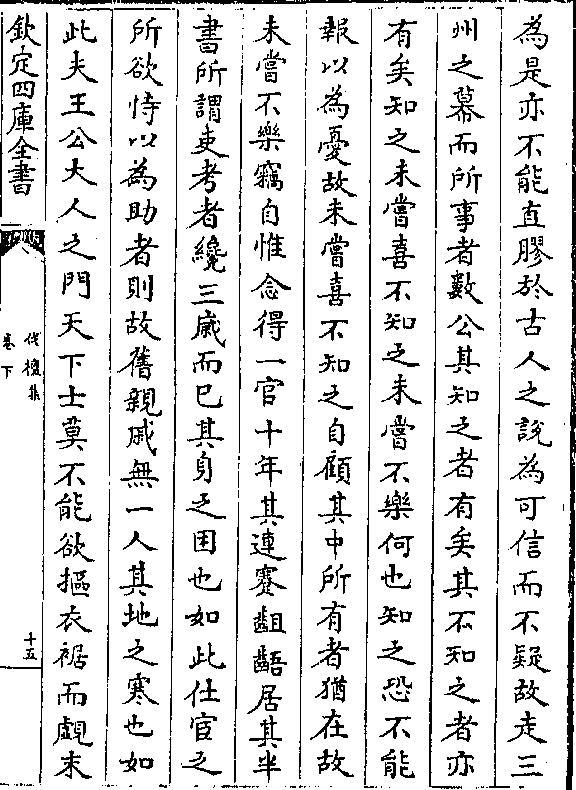 為是亦不能直膠於古人之說為可信而不疑故走三
州之幕而所事者數公其知之者有矣其不知之者亦
有矣知之未嘗喜不知之未嘗不樂何也知之恐不能
報以為憂故未嘗喜不知之自顧其中所有者猶在故
未嘗不樂竊自惟念得一官十年其連蹇齟齬居其半
書所謂吏考者纔三歲而已其身之困也如此仕宦之
所欲恃以為助者則故舊親戚無一人其地之寒也如
此夫王公大人之門天下士莫不能欲摳衣裾而覷末
欽定四庫全書
伐檀集
卷下
十五